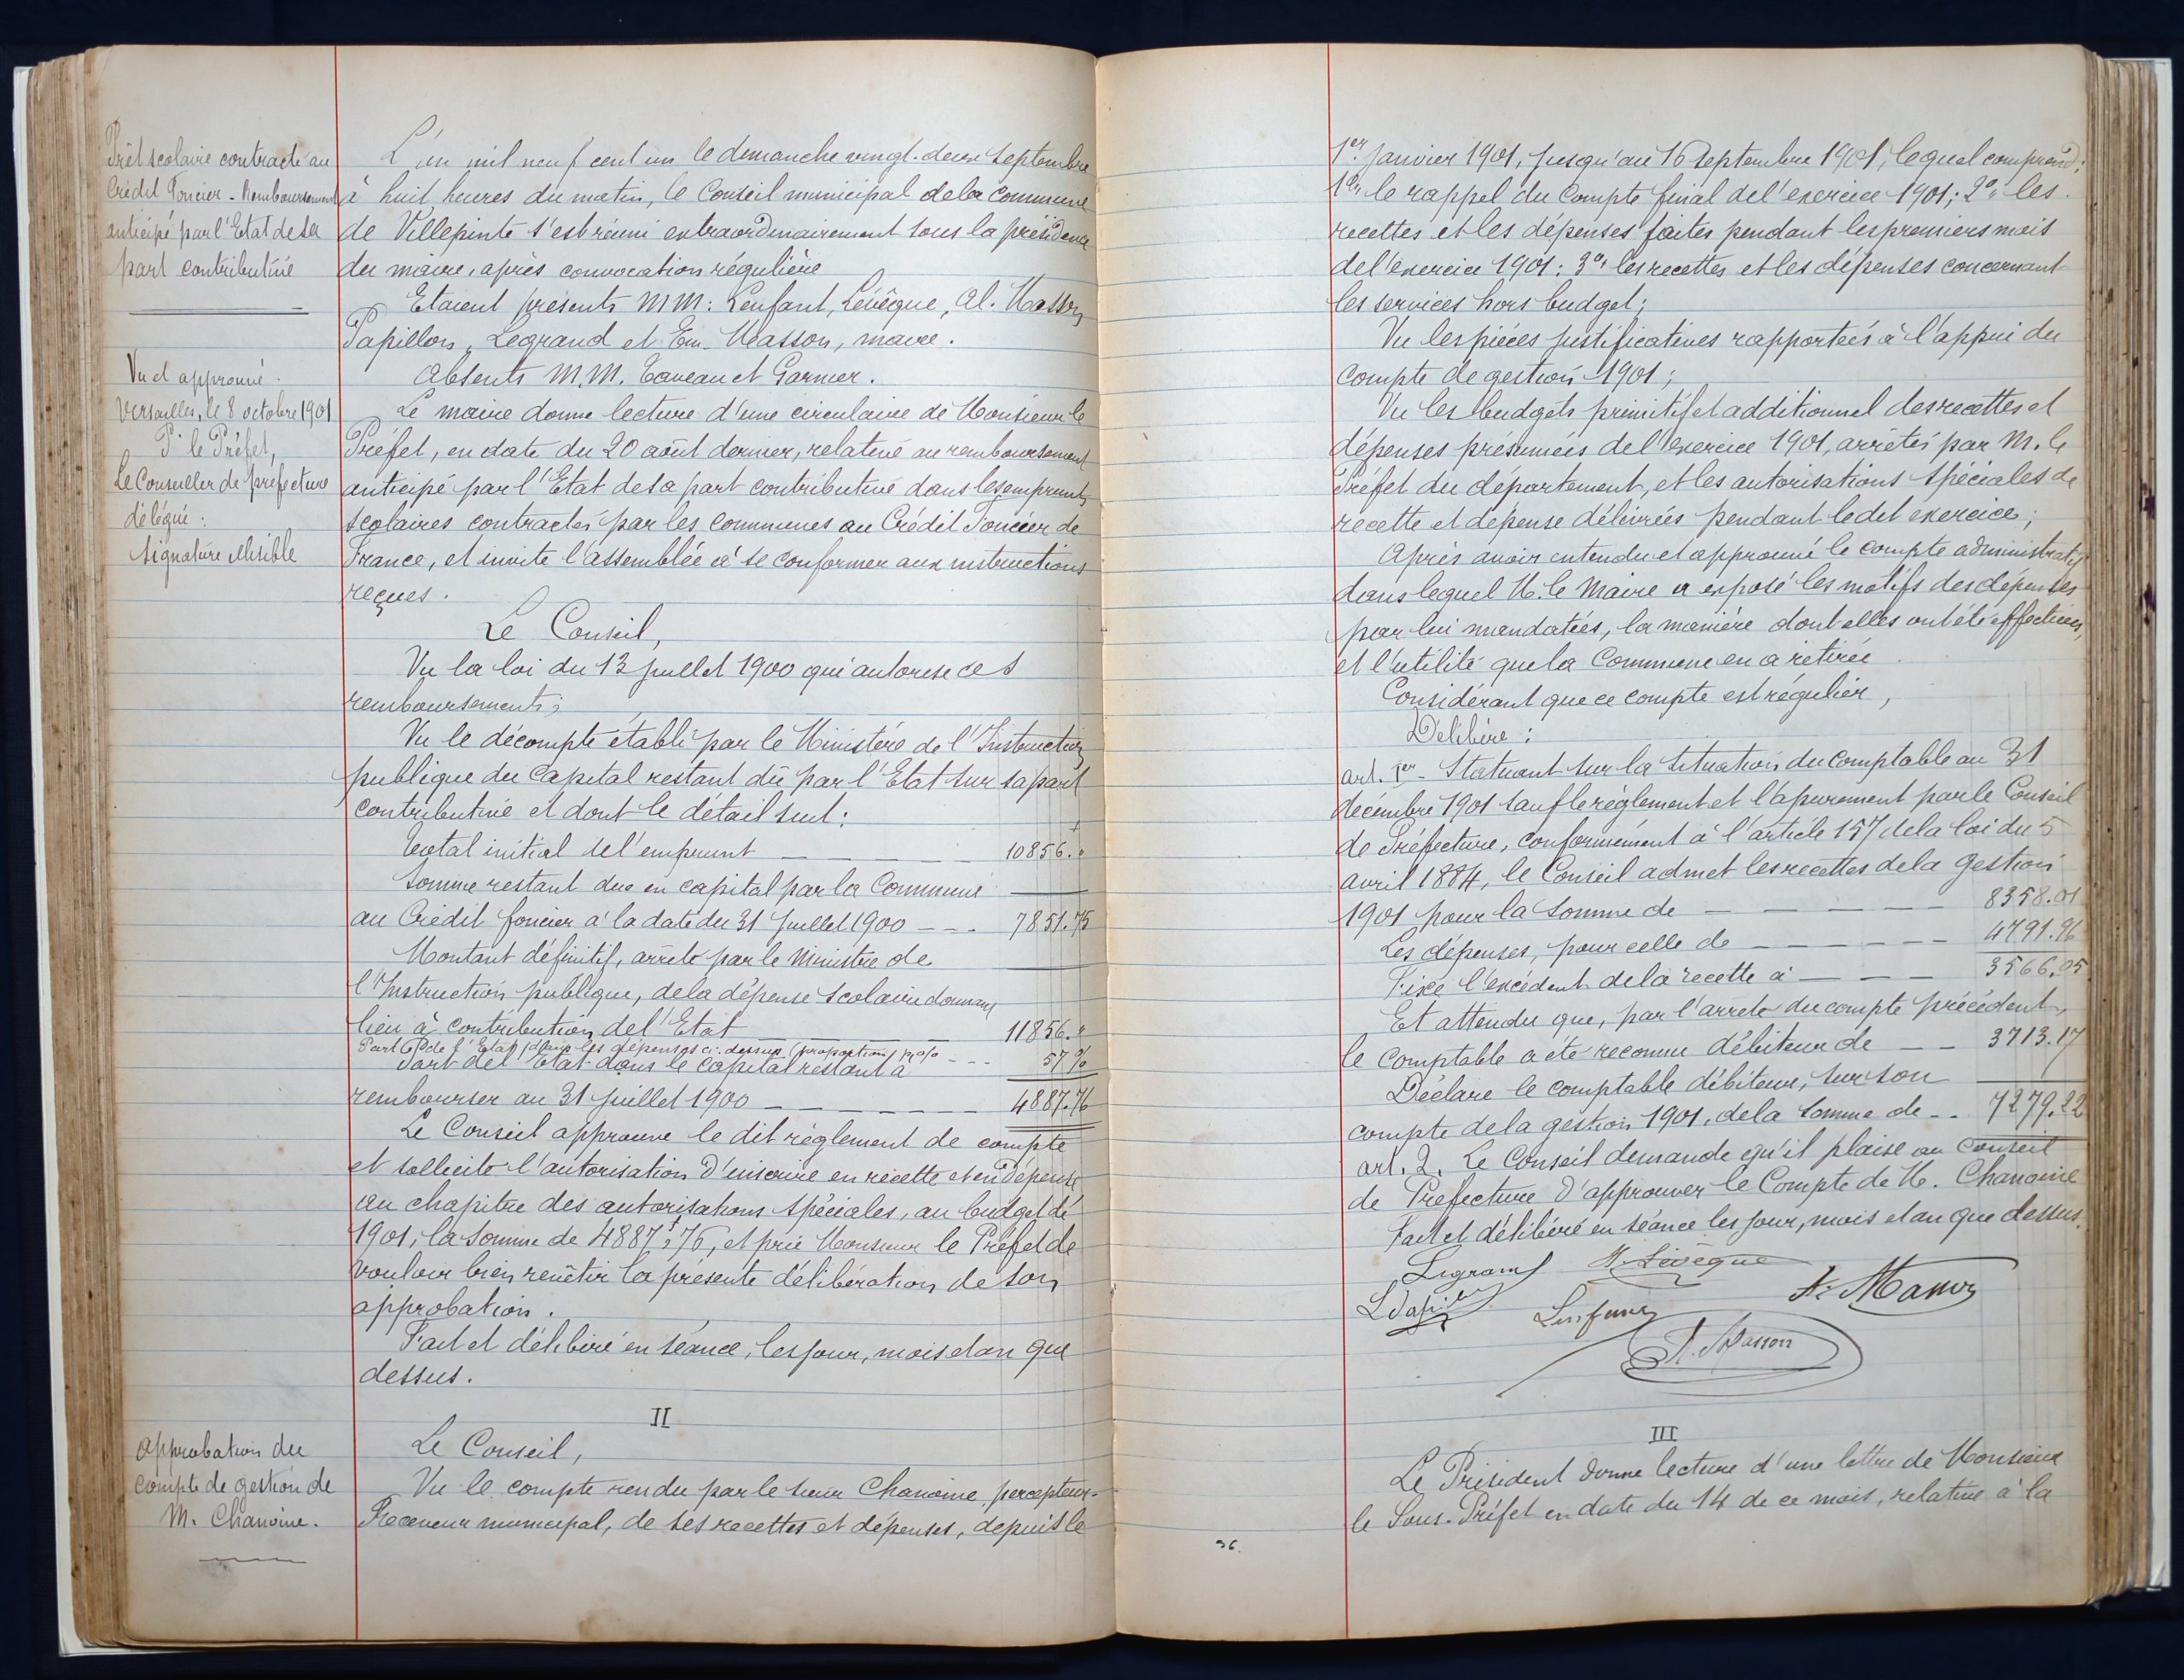 Prêt scolaire contracté au
Crédit Foncier - Remboursement
anticipé par l'Etat de sa
part contributive
Vu et approuvé.
Versailles, le 8 octobre 1901
Pr le Préfet,
Le Conseiller de préfecture
délégué:
signature illisible
L'an mil neuf cent un le dimanche vingt-deux septembre
à huit heures du matin, le Conseil municipal de la commune
de Villepinte s'est réuni extraordinairement sous la présidence
du maire, après convocation régulière
Etaient présents MM: Lenfant, Lévêque, Al. Masson,
Papillon, Legrand et Em. Masson, maire.
Absents M.M. Taveau et Garnier.
Le maire donne lecture d'une circulaire de Monsieur le
Préfet, en date du 20 août dernier, relative au remboursement
anticipé par l'Etat de sa part contributive dans les emprunts
scolaires contractés par les communes au Crédit Foncier de
France, et invite l'assemblée à se conformer aux instructions
reçues.
Le Conseil,
Vu la loi du 13 juillet 1900 qui autorise ces
remboursements;
Vu le décompte établi par le Ministère de l'Instruction
publique du capital restant dû par l'Etat sur sa part
contributive et dont le détail suit:
Total initial de l'emprunt 10856.
Somme restant due en capital par la Commune
au Crédit foncier à la date du 31 juillet 1900 --- 7851.75
Montant définitif, arrêté par le Ministre de
l'Instruction publique, de la dépense scolaire donnant
lieu à contribution de l'Etat 11856.
Part de l'Etat dans les dépenses ci-dessus (proportion) p% --- 57 %
Part de l'Etat dans le capital restant à
rembourser au 31 juillet 1900 4887.76
Le Conseil approuve le dit règlement de compte
et sollicite l'autorisation d'inscrire en recette et en dépense
au chapitre des autorisations spéciales, au budget de
1901, la somme de 4887f,76, et prie Monsieur le Préfet de
vouloir bien revêtir la présente délibération de son
approbation.
Fait et délibéré en séance, les jour, mois et an que
dessus.
II
Approbation du
compte de gestion de
M. Chanoine.
Le Conseil,
Vu le compte rendu par le sieur Chanoine, percepteur-
Receveur municipal, de ses recettes et dépenses, depuis le
1er janvier 1901, jusqu'au 16 septembre 1901, lequel comprend:
1o, le rappel du Compte final de l'exercice 1901; 2o, les
recettes et les dépenses faites pendant les premiers mois
de l'exercice 1901: 3o, les recettes et les dépenses concernant
les services hors budget;
Vu les pièces justificatives rapportées à l'appui du
compte de gestion 1901;
Vu les budgets primitif et additionnel des recettes et
dépenses présumées de l'exercice 1901, arrêtés par M. le
Préfet du département, et les autorisations spéciales de
recette et dépense délivrées pendant ledit exercice;
Après avoir entendu et approuvé le compte administratif
dans lequel M. le Maire a exposé les motifs des dépenses
par lui mandatées, la manière dont elles ont été effectuées,
et l'utilité que la Commune en a retirée
Considérant que ce compte est régulier,
Délibère:
art. 1er - Statuant sur la situation du comptable au 31
décembre 1901 sauf le règlement et l'apurement par le Conseil
de Préfecture, conformément à l'article 157 de la loi du 5
avril 1884, le Conseil admet les recettes de la gestion
1901 pour la somme de 8358.01
Les dépenses, pour celle de 4791.96
Fixe l'excédent de la recette à 3566.05
Et attendu que, par l'arrêté du compte précédent,
le comptable a été reconnu débiteur de 3713.17
Déclare le comptable débiteur, sur son
compte de la gestion 1901, de la somme de 7279.22
art. 2. Le Conseil demande qu'il plaise au Conseil
de Préfecture d'approuver le Compte de M. Chanoine
Fait et délibéré en séance les jour, mois et an que dessus.
Legrand
Lévêque
Lenfant
Masson
A. Masson
III
Le Président donne lecture d'une lettre de Monsieur
le Sous-Préfet en date du 14 de ce mois, relative à la
36.